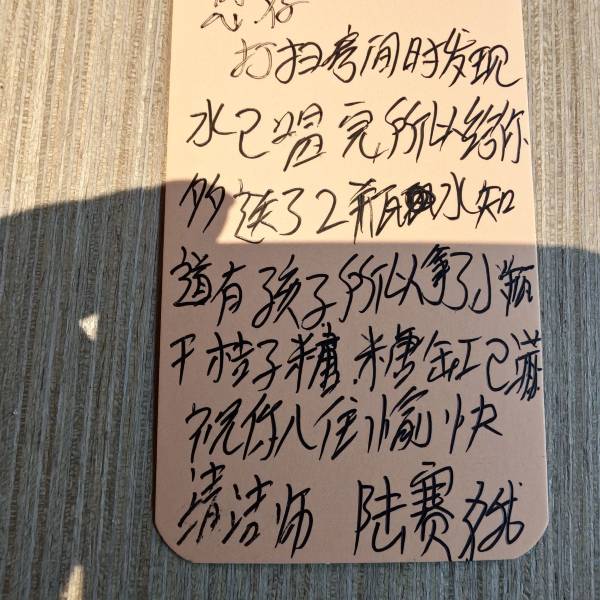 您好
打扫房间时发现
水已喝完所以给你
多送了2瓶水知
道有孩子所以拿了小瓶
干桔子糖.糖缸已满
祝你入住愉快
清洁师 陆赛